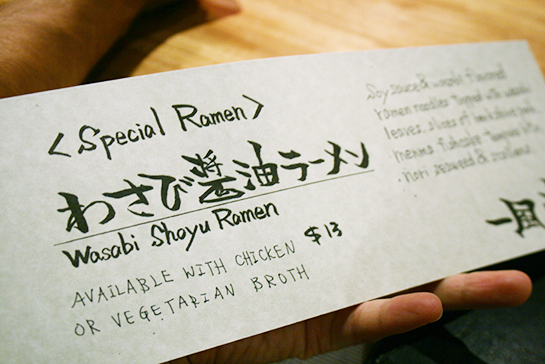 <Special Ramen>
わさび醤油ラーメン
Wasabi Shoyu Ramen
$13
AVAILABLE WITH CHICKEN
OR VEGETARIAN BROTH
Soy sauce & wasabi flavored
ramen noodles topped with wasabi
leaves, slices of
menma,
nori seaweed & scallions
一風